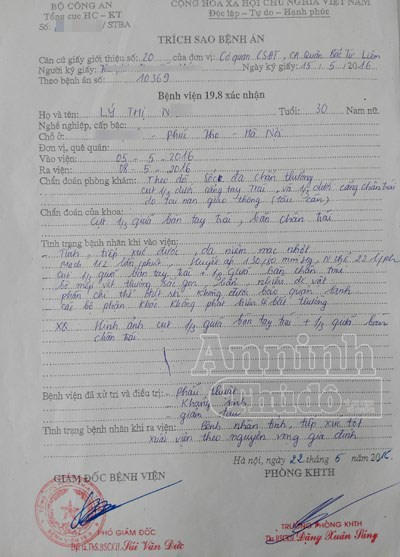 BỘ CÔNG AN
Tổng cục HC - KT
Số: /STBA
CỘNG HÒA XÃ HỘI CHỦ NGHĨA VIỆT NAM
Độc lập - Tự do - Hạnh phúc
TRÍCH SAO BỆNH ÁN
Căn cứ giấy giới thiệu số: 20 của đơn vị: Cơ quan CSĐT, CA Quận Bắc Từ Liêm
Người ký giấy: Ngày ký giấy: 15/5/2016
Theo bệnh án số: 10369
Bệnh viện 19.8 xác nhận
Họ và tên: LÝ THỊ N Tuổi: 30 Nam nữ.
Nghề nghiệp, cấp bậc:
Chỗ ở: - Phúc Thọ - Hà Nội
Đơn vị, quê quán:
Vào viện: 05 - 5 - 2016
Ra viện: 08 - 5 - 2016
Chẩn đoán phòng khám: Theo dõi sốc đa chấn thương
cụt 1/3 dưới cẳng tay trái, và 1/3 dưới cẳng chân trái
do tai nạn giao thông (tàu cán)
Chẩn đoán của khoa:
Cụt 1/3 quá bàn tay trái, bàn chân trái
Tình trạng bệnh nhân khi vào viện:
- Tỉnh, tiếp xúc được, da niêm mạc nhợt
- Mạch 112 lần/phút, Huyết áp 130/80 mmHg, N.thở 22 l/ph
- Cụt 1/3 quá bàn tay trái + 1/3 quá bàn chân trái
bờ mép vết thương sắc gọn, nhiều dị vật
phần chi thể không được bảo quản lạnh
- Các bộ phận khác không phát hiện gì bất thường
XQ: Hình ảnh cụt 1/3 quá bàn tay trái + 1/3 quá bàn
chân trái.
Anninh
Thủ đô.com.vn
Bệnh viện đã xử trí và điều trị: - Phẫu thuật
- Kháng sinh
- giảm đau
Tình trạng bệnh nhân khi ra viện: Bệnh nhân tỉnh, tiếp xúc tốt
xuất viện theo nguyện vọng gia đình
Hà nội, ngày 22 tháng 5 năm 2016
GIÁM ĐỐC BỆNH VIỆN
PHÒNG KHTH
PHÓ GIÁM ĐỐC
Đại tá, ThS.BSCKII. Bùi Văn Đức
TRƯỞNG PHÒNG KHTH
Ths.BSCKII. Đặng Xuân Sáng